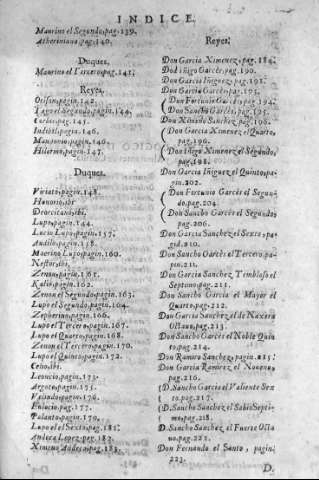 INDICE.
Maurino el Segundo, pag. 139.
Atheriniano, pag. 140.
Duques.
Maurino el Tercero, pag. 141.
Reyes,
Ocisin, pagin. 142.
Yago el segundo, pagin. 144.
pag. 145.
Indibil, pagin. 146.
Mandonio, pagin. 146.
Hilerno, pagin. 147.
Duques.
Viriato, pagin. 148.
Hanonio, ibi
ibi.
Lupo, pagin. 144.
Lucio Lupo, pagin. 157.
Andilo, pagin. 158.
Moerino Lupo, pagin. 160.
Nestor, ibi.
Zenon, pagin. 161.
pagin. 162.
Zenon el Segundo, pagin. 163.
Lupo el Segundo, pagin. 164.
Zepherino, pagin. 166.
Lupo el Tercero, pagin. 167.
Lupo el Quarto, pagin. 168.
Zenon el Tercero, pagin. 170.
Lupo el Quinto, pagin. 172.
ibi.
Leoncio, pagin. 173.
pagin. 175.
pagin. 176.
pag. 177.
pagin. 179.
Lupo el Sexto, pag. 181.
Andeca Lopez, pag. 182.
Ximeno pag. 183.
Reyes.
Don Garcia Ximenez, pag. 184.
Don Iñigo Garcès, pag. 190.
Don Garcia Iñiguez, pag. 191.
Don Garcia Garcès, pag. 193.
Don Fortunio Garcès, pag. 194.
Don Sancho Garcès, pag. 195.
Don Ximeno Sanchez, pag. 196.
Don Garcia Ximenez el Quarto,
pag. 196.
Don Iñigo Ximenez el Segundo,
pag. 198.
Don Garcia Iñiguez el Quinto, pa-
gin. 202.
Don Fortunio Garcès el Segun-
do, pag. 204.
Don Sancho Garcès el Segundo,
pag. 206.
Don Garcia Sanchez el Sexto, pa-
gid. 210.
Don Sancho Garcès el Tercero, pa-
gin. 211.
Don Garcia Sanchez Tembloso el
Septimo, pag. 211.
Don Sancho Garcia el Mayor el
Quarto, pag. 212.
Don Garcia Sanchez el de Naxera
Octauo, pag. 213.
Don Sancho Garcès el Noble Quin
to, pag. 214.
Don Ramiro Sanchez, pagin. 215.
Don Garcia Ramirez el Noueno,
pag. 216.
D. Sancho Garcia el Valiente Sex
to, pag. 217.
D. Sancho Sanchez el Sabio Septi-
mo, pag. 218.
D. Sancho Sanchez el Fuerte Octa
uo, pag. 221.
Don Fernando el Santo, pagin.
223.
D.